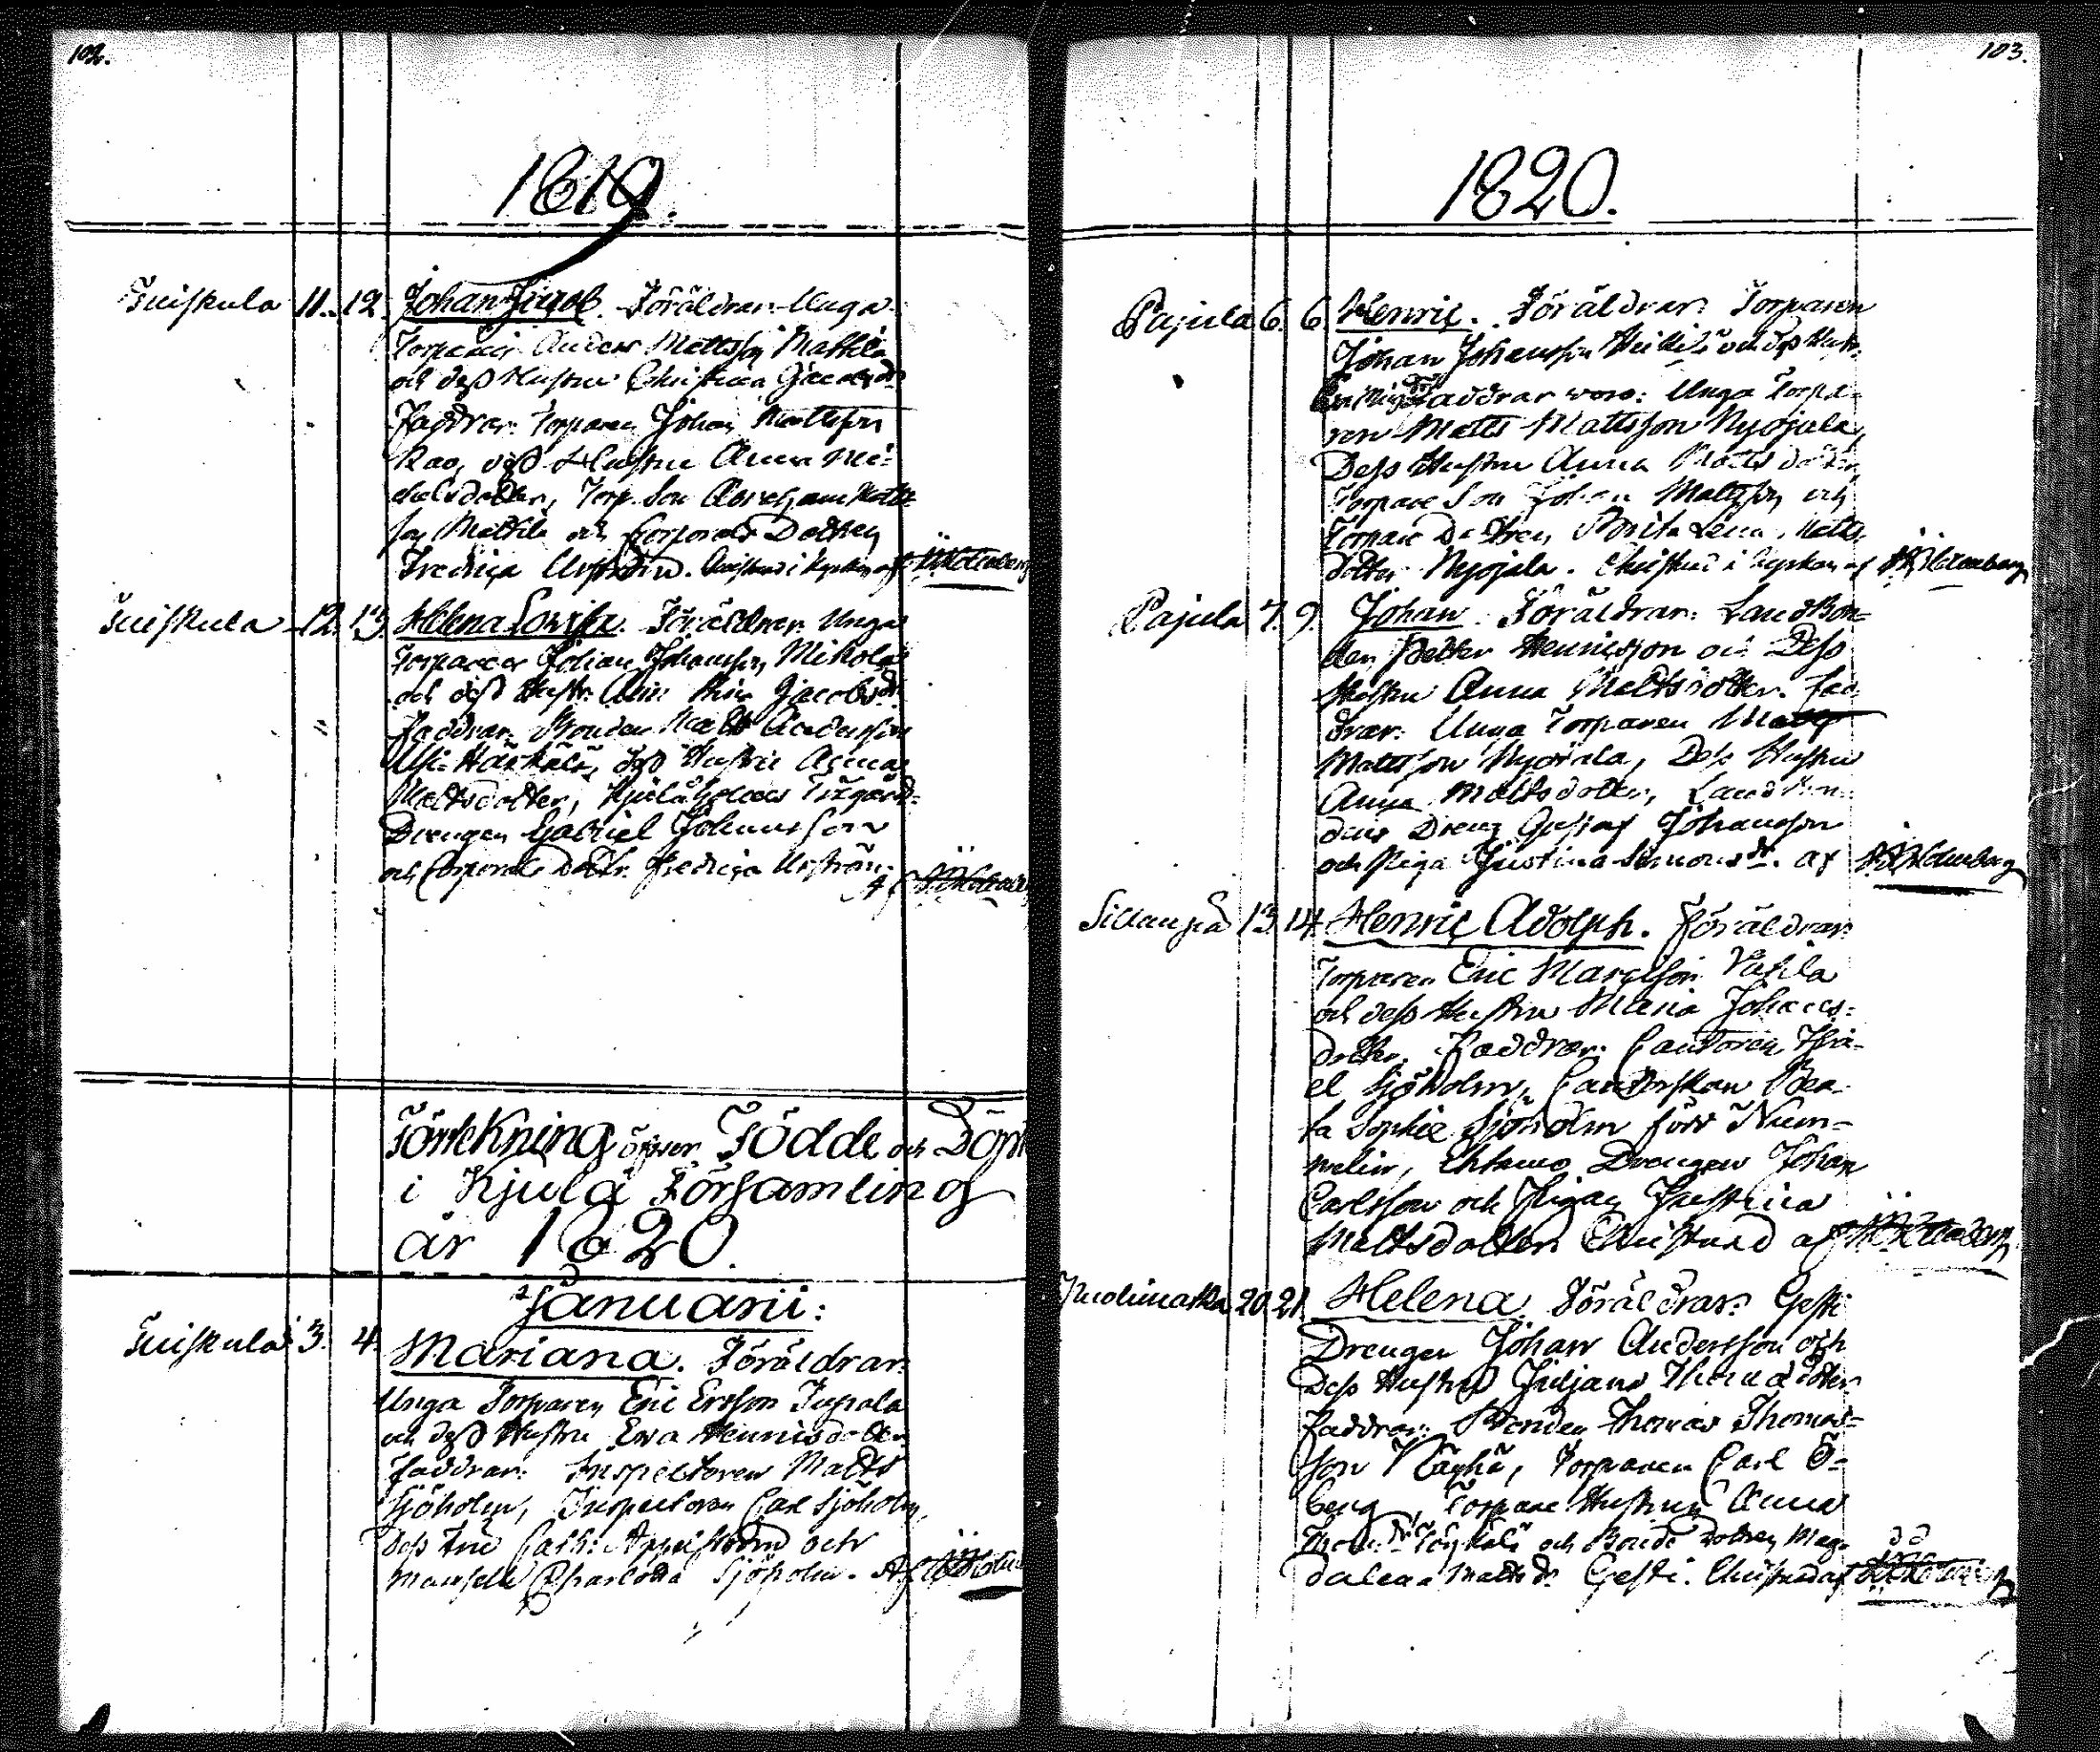 102.
1819.
Suiskula 11. 12. Johan Jacob. Föräldrar: Unga
Torparen Anders Mattsson Mattila
och dess Hustru Christina Jacobsdr
Faddrar: Torparen Johan Mattsson
dess Hustru Anna Mi-
chelsdotter, Torp. Son Abraham Matts-
son Mattila och Corporals Dottren
Fredrica. Christnad i Kyrkan af
Suiskula 12. 13. Helena Lovisa. Föräldrar: Unga
Torparen Johan Johansson Mikola
och dess Hustr. Jacobsdr
Faddrar: Bonden Matts Andersson
Härkälä, dess Hustru Agnas
Mattsdotter, Kjulåholms Trägårds-
Drengen Gabriel Johansson
och Corporals Dottr. Fredrica
Af
Förtekning öfwer Födde och Döpte
i Kjulå Församling
år 1820.
Januarii:
Suiskula 3. 4. Mariana. Föräldrar:
Unga Torparen Eric Ersson
och dess Hustru Ewa Henricsdotter.
Faddrar: Inspectoren Matts
Sjöholm, Inspectoren Carl Sjöholm,
dess Fru Cath: och
Mamsell Charlotta Sjöholm. Af
103.
1820.
Pajula 6. 6. Henric. Föräldrar: Torparen
Johan Johansson Heikilä och dess Hustr.
Faddrar woro: Unga Torpa-
ren Matts Mattsson Nyojala,
Dess Hustru Anna Matts dotter
Torpare Son Johan Mattsson och
Torpare Dottren Brita Lena Matts
dotter Nyojala. Christnad i Kyrkan af
Pajula 7. 9. Johan. Föräldrar: Landbon-
den Petter Henricsson och Dess
Hustru Anna Mattsdotter. Fad-
drar: Unga Torparen Matts
Mattsson Nyojala, Dess Hustru
Anna Mattsdotter, Landbon-
dens Dreng Gustaf Johansson
och Piga Justina Simonsdr. af
Sillanpä 13. 14. Henric Adolph. Föräldrar:
Torparen Eric
och dess Hustru Maria Johans-
dotter. Faddrar: Cantoren
el Sjöholm, Cantorskan Bea-
ta Sophie Sjöholm född Num-
melin, Drengen Johan
Carlsson och Pigan Justina
Mattsdotter. Christnad af
20. 21. Helena. Föräldrar: Gesti
Drengen Johan Andersson och
Dess Hustru Juljana Thomædotter
Faddrar: Bonden Thomas Thomas-
son, Torparen Carl Ö-
berg, Torpare Hustrun Anna
och Bonde Dottren Mag-
dalena Mattsdr Gesti. Christnad af